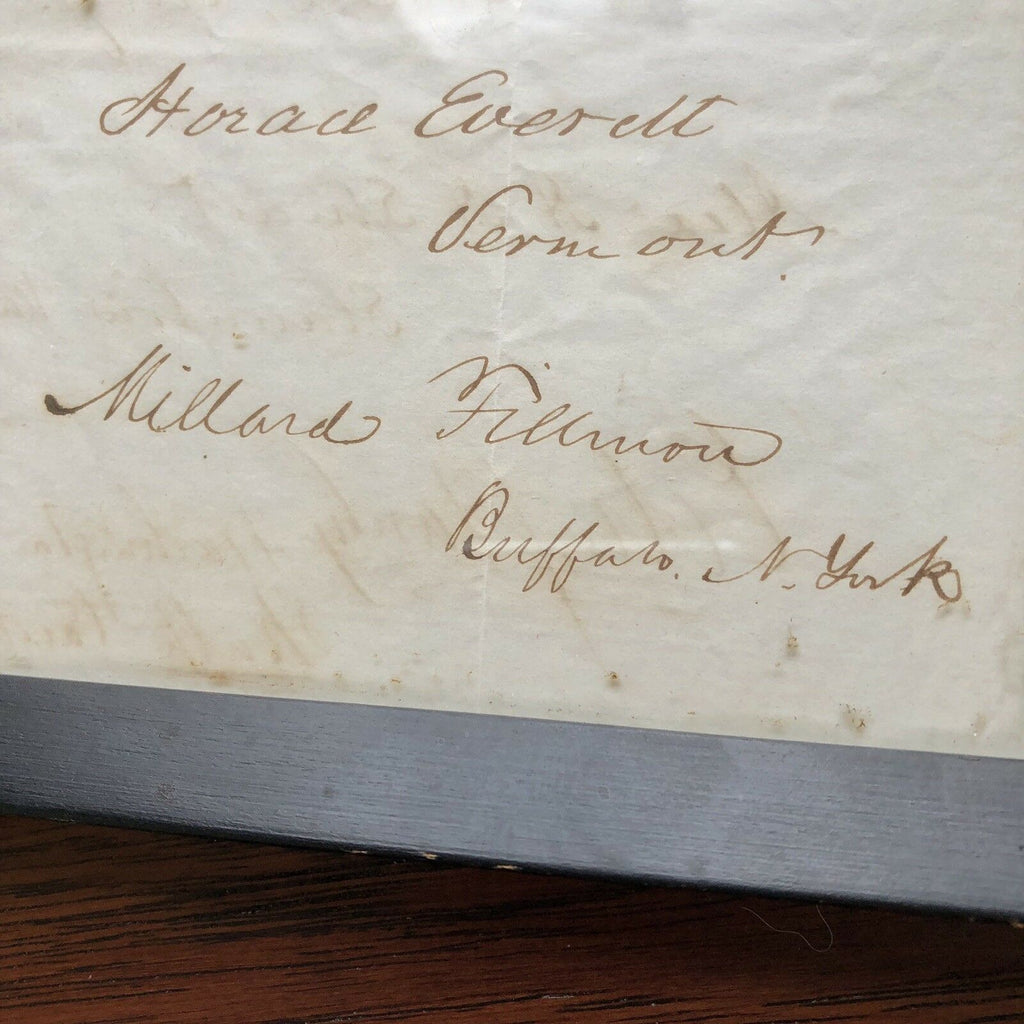 Horace Everett
Vermont.
Millard Fillmore
Buffalo. N. York